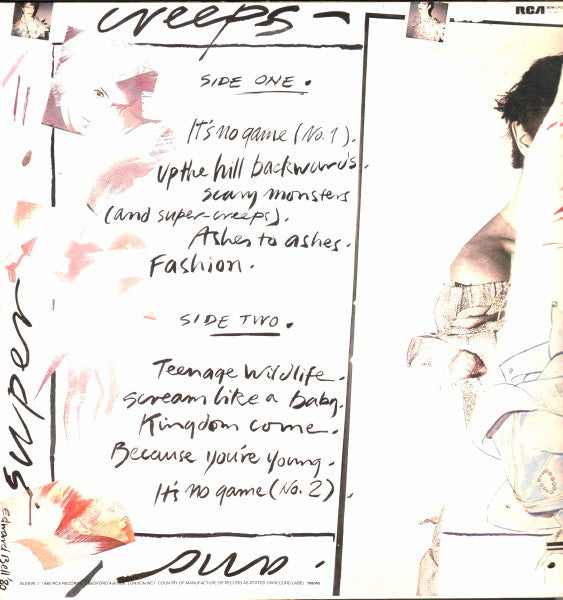 creeps
RCA
SIDE ONE.
It's no game (No. 1).
Up the hill backwards.
Scary monsters
(and super-creeps).
Ashes to ashes.
Fashion.
SIDE TWO.
Teenage Wildlife.
Scream like a baby.
Kingdom come.
Because you're young.
It's no game (No. 2).
super
and
Edward Bell '80
SLEEVE ℗ 1980 RCA RECORDS, BEDFORD AVENUE, LONDON WC1. COUNTRY OF MANUFACTURE OF RECORD AS STATED ON RECORD LABEL